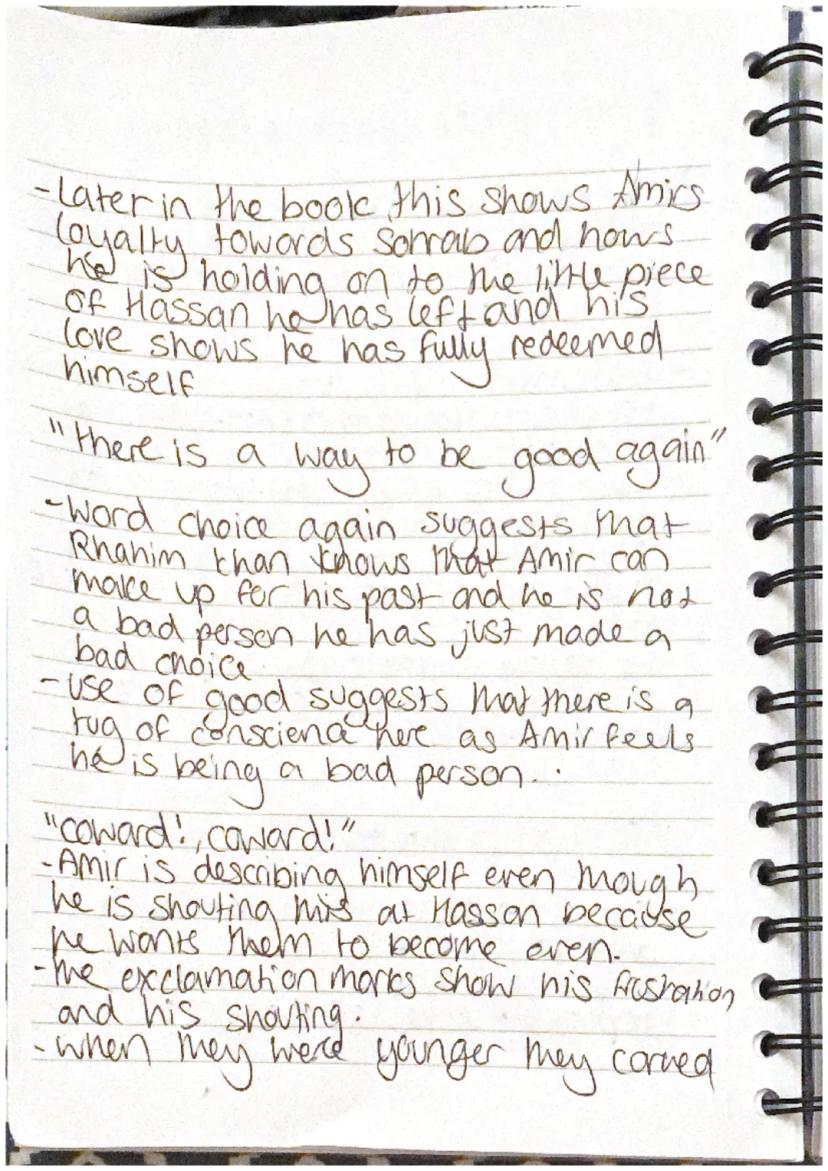 - Later in the book this shows Amirs
loyalty towards Sorrab and hows
he is holding on to the little piece
of Hassan he has left and his
love shows he has fully redeemed
himself
"there is a way to be good again"
- word choice again suggests that
Rhahim khan knows that Amir can
make up for his past and he is not
a bad person he has just made a
bad choice
- use of good suggests that there is a
tug of conscience here as Amir feels
he is being a bad person..
"coward!, coward!"
- Amir is describing himself even though
he is shouting this at Hassan because
he wants them to become even.
- the exclamation marks show his frustration
and his shouting.
- when they were younger they carved